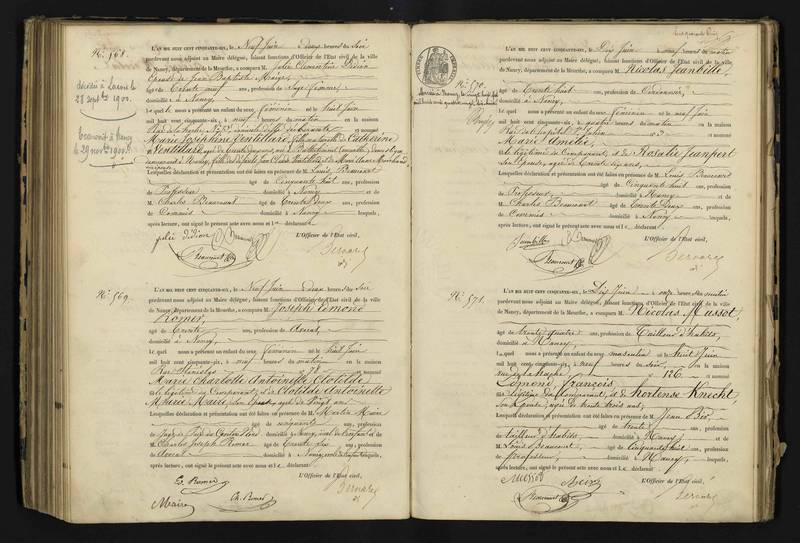 N° 568.
L'AN MIL HUIT CENT CINQUANTE-SIX, le Neuf Juin à deux heures du Soir
pardevant nous adjoint au Maire délégué, faisant fonctions d'Officier de l'Etat civil de la ville
de Nancy, département de la Meurthe, a comparu M. Julie Clémentine Didion
Epouse de Jean Baptiste
âgé de Trente neuf ans, profession de Sage femme,
domicilié à Nancy,
Lequel nous a présenté un enfant du sexe féminin né le huit Juin
mil huit cent cinquante-six, à neuf heures du matin en la maison
et nommé
Marie Joséphine Gentilhaire, fille naturelle de Catherine
Gentilhaire, âgée de
Lesquelles déclaration et présentation ont été faites en présence de M. Louis Beaucourt
âgé de Cinquante huit ans, profession
de Professeur domicilié à Nancy et de
M. Charles Beaucourt âgé de Trente deux ans, profession
de Commis domicilié à Nancy lesquels,
après lecture, ont signé le présent acte avec nous et le déclarant
L'Officier de l'Etat civil,
julie didion
Beaucourt
Bernard
décédée à
28 sept bre 1900.
Beaucourt à Nancy
29 novbre 1900.
N° 569.
L'AN MIL HUIT CENT CINQUANTE-SIX, le Neuf Juin à deux heures du Soir
pardevant nous adjoint au Maire délégué, faisant fonctions d'Officier de l'Etat civil de la ville
de Nancy, département de la Meurthe, a comparu M. Joseph Edmond
Romer,
âgé de Trente ans, profession de Avocat,
domicilié à Nancy,
Lequel nous a présenté un enfant du sexe féminin né le huit Juin
mil huit cent cinquante-six, à neuf heures du matin en la maison
Rue Stanislas 78 et nommé
Marie Charlotte Antoinette Clotilde
née légitime du Comparant et de Clotilde Antoinette
Marie Maire, son Epouse, âgée de Vingt ans
Lesquelles déclaration et présentation ont été faites en présence de M. Martin Maire
âgé de cinquante ans, profession
de Juge domicilié à Nancy, aïeul de l'enfant et de
M. Charles Joseph Romer âgé de Trente six ans, profession
de Avocat domicilié à Nancy, oncle de l'enfant lesquels,
après lecture, ont signé le présent acte avec nous et le déclarant
L'Officier de l'Etat civil,
E. Romer
Maire
Ch. Romer
Bernard
N° 570.
L'AN MIL HUIT CENT CINQUANTE-SIX, le Dix Juin à neuf heures du matin
pardevant nous adjoint au Maire délégué, faisant fonctions d'Officier de l'Etat civil de la ville
de Nancy, département de la Meurthe, a comparu M. Nicolas Jeanbille,
âgé de Trente huit ans, profession de Cordonnier,
domicilié à Nancy,
Lequel nous a présenté un enfant du sexe féminin né le neuf Juin
mil huit cent cinquante-six, à quatre heures du matin en la maison
Rue de l'hopital St Julien n° 3 et nommé
Marie Amélie,
née légitime du Comparant, et de Rosalie Jeanpert
son Epouse, âgée de Trente six ans,
Lesquelles déclaration et présentation ont été faites en présence de M. Louis Beaucourt
âgé de Cinquante huit ans, profession
de Professeur, domicilié à Nancy et de
M. Charles Beaucourt âgé de Trente deux ans, profession
de Commis domicilié à Nancy lesquels,
après lecture, ont signé le présent acte avec nous et le déclarant
L'Officier de l'Etat civil,
Jeanbille
Beaucourt
Bernard
N° 571.
L'AN MIL HUIT CENT CINQUANTE-SIX, le Dix Juin à onze heures du matin
pardevant nous adjoint au Maire délégué, faisant fonctions d'Officier de l'Etat civil de la ville
de Nancy, département de la Meurthe, a comparu M. Nicolas Mussot,
âgé de trente quatre ans, profession de Tailleur d'habits,
domicilié à Nancy,
Lequel nous a présenté un enfant du sexe masculin né le huit Juin
mil huit cent cinquante-six, à neuf heures du soir, en la maison
rue de la hache, 126 et nommé
Edmond françois,
né légitime du Comparant, et de hortense Knecht,
son Epouse, âgée de trente trois ans,
Lesquelles déclaration et présentation ont été faites en présence de M. Jean Bir,
âgé de trente ans, profession
de tailleur d'habits domicilié à Nancy et de
M. Louis Beaucourt, âgé de Cinquante huit ans, profession
de professeur, domicilié à Nancy, lesquels,
après lecture, ont signé le présent acte avec nous et le déclarant
L'Officier de l'Etat civil,
Mussot
Beaucourt
Bernard